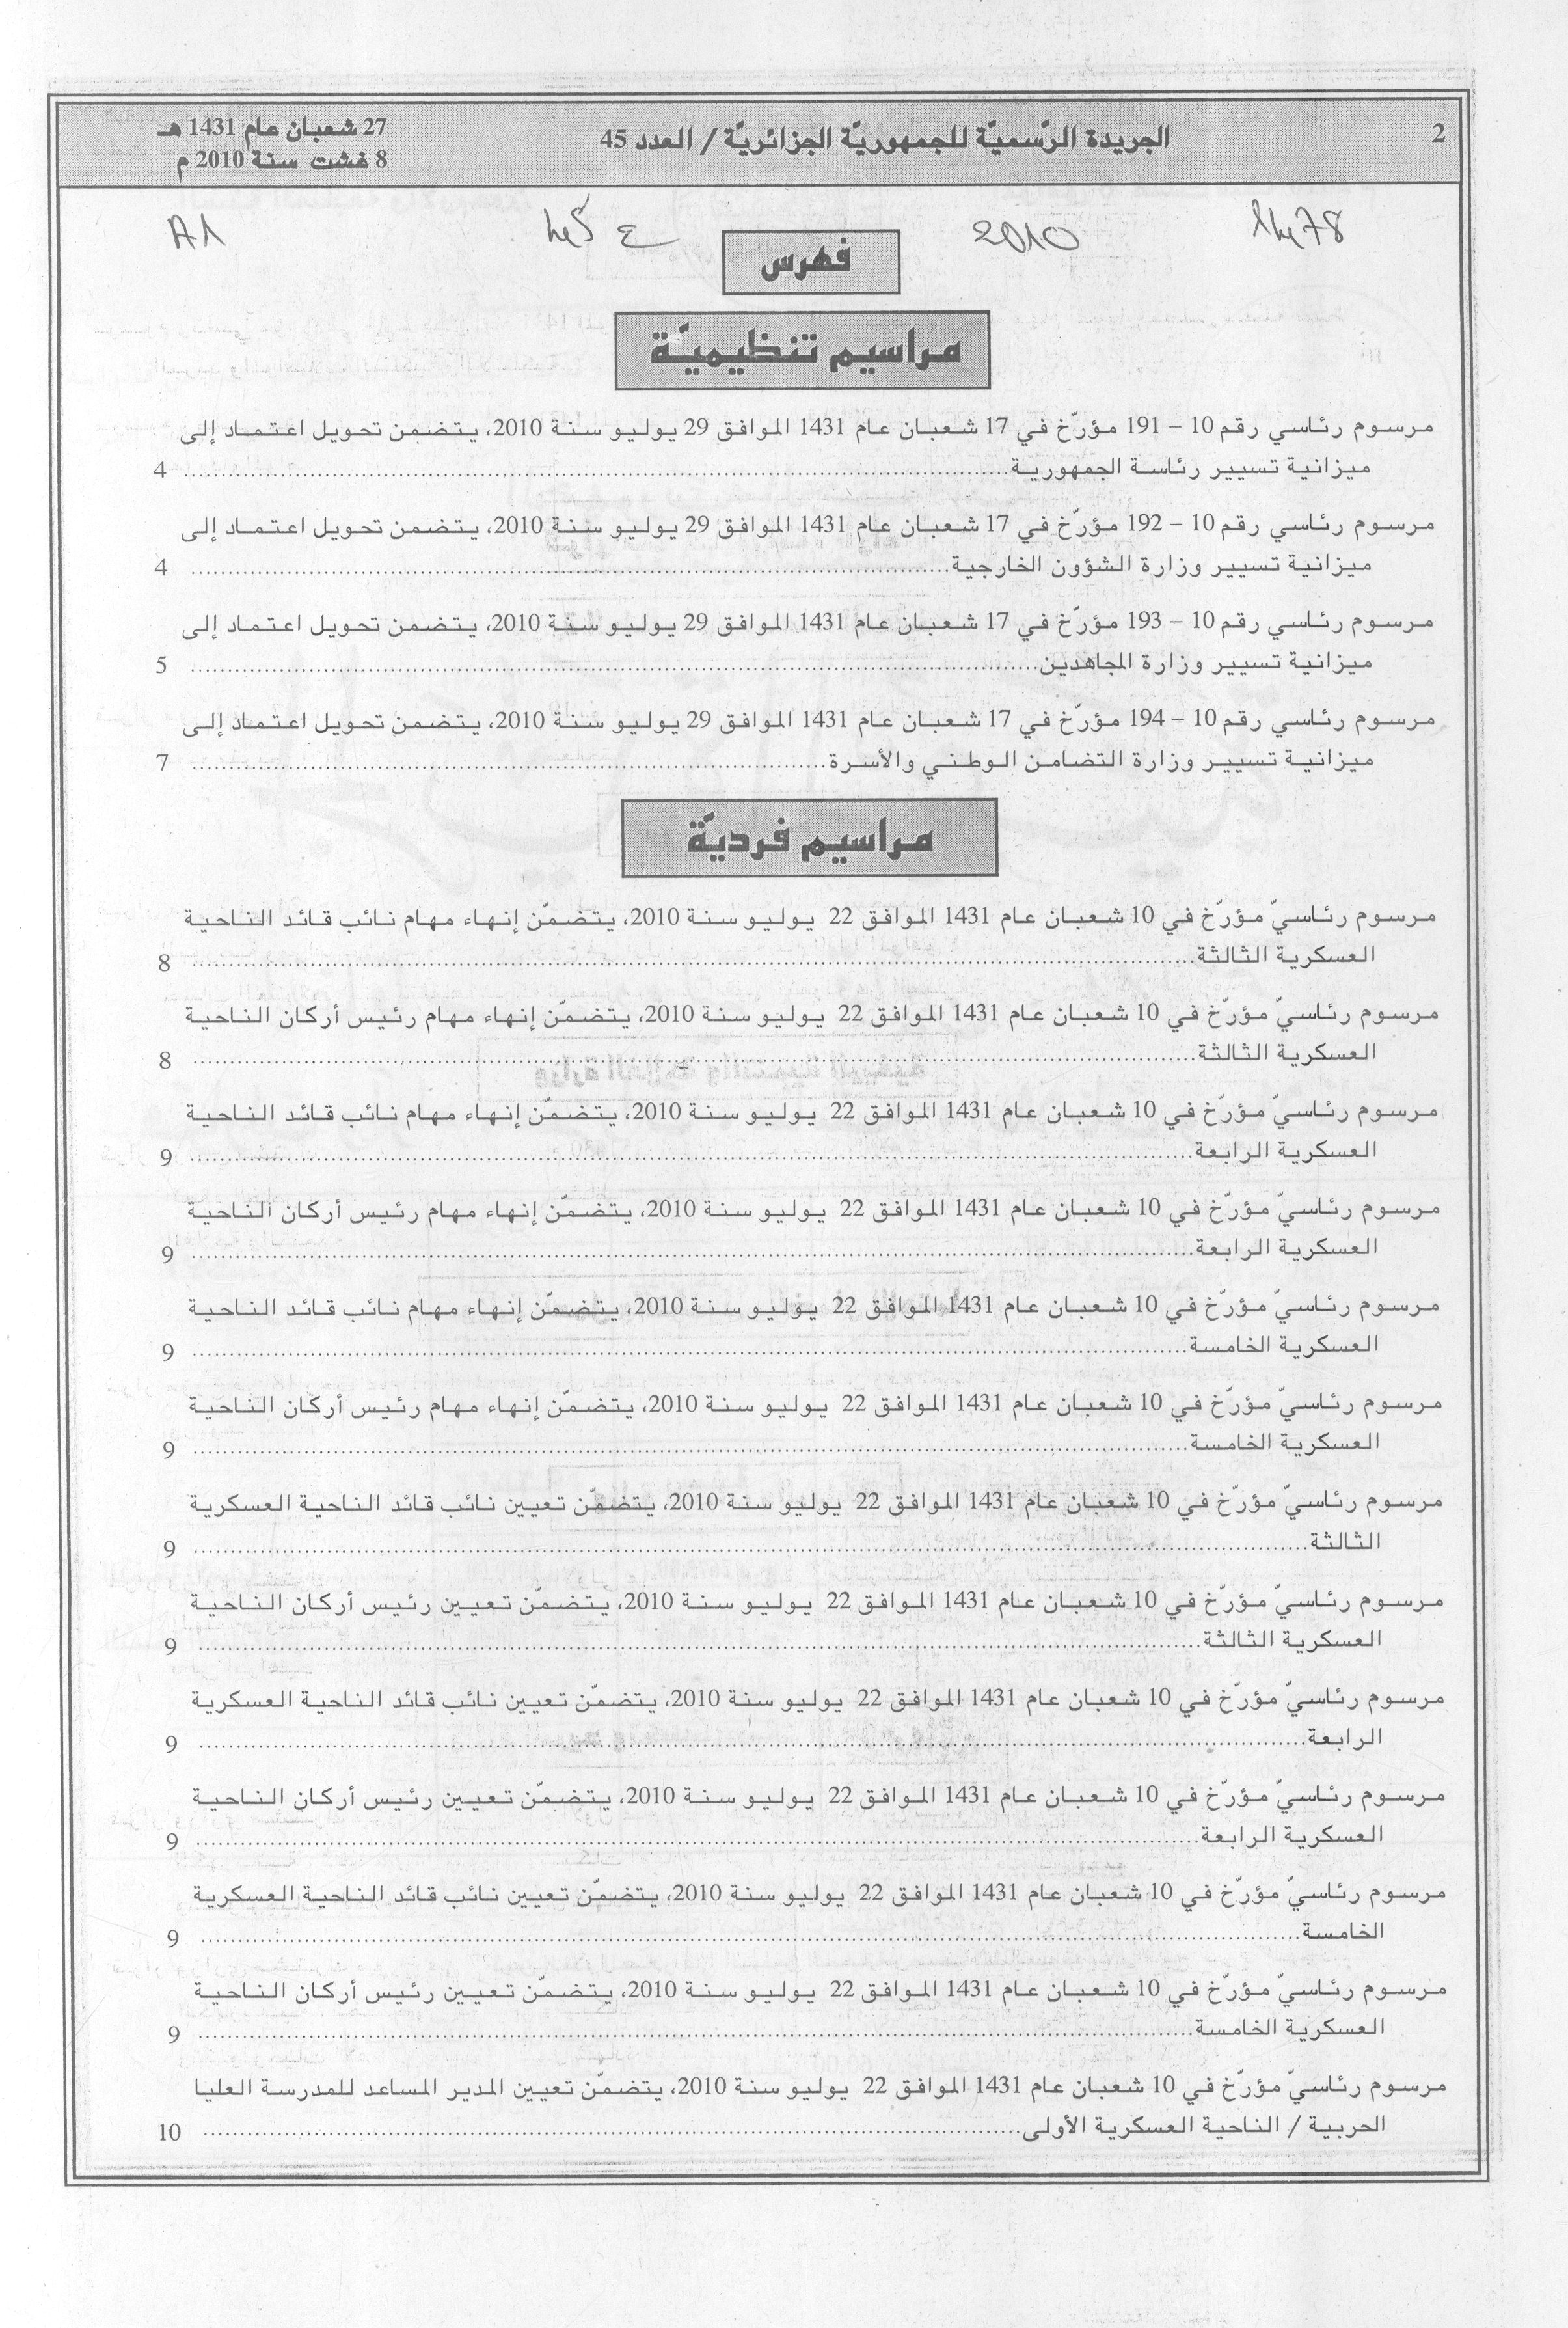 2
الجريدة الرّسميّة للجمهوريّة الجزائريّة / العدد 45
27 شعبان عام 1431 هـ
8 غشت سنة 2010 م
1478
2010
ع 45
A1
فهرس
مراسيم تنظيميّة
مرسوم رئاسي رقم 10 – 191 مؤرّخ في 17 شعبان عام 1431 الموافق 29 يوليو سنة 2010، يتضمن تحويل اعتماد إلى
ميزانية تسيير رئاسة الجمهورية........................................ 4
مرسوم رئاسي رقم 10 – 192 مؤرّخ في 17 شعبان عام 1431 الموافق 29 يوليو سنة 2010، يتضمن تحويل اعتماد إلى
ميزانية تسيير وزارة الشؤون الخارجية........................................ 4
مرسوم رئاسي رقم 10 – 193 مؤرّخ في 17 شعبان عام 1431 الموافق 29 يوليو سنة 2010، يتضمن تحويل اعتماد إلى
ميزانية تسيير وزارة المجاهدين........................................ 5
مرسوم رئاسي رقم 10 – 194 مؤرّخ في 17 شعبان عام 1431 الموافق 29 يوليو سنة 2010، يتضمن تحويل اعتماد إلى
ميزانية تسيير وزارة التضامن الوطني والأسرة........................................ 7
مراسيم فرديّة
مرسوم رئاسيّ مؤرّخ في 10 شعبان عام 1431 الموافق 22 يوليو سنة 2010، يتضمّن إنهاء مهام نائب قائد الناحية
العسكرية الثالثة........................................ 8
مرسوم رئاسيّ مؤرّخ في 10 شعبان عام 1431 الموافق 22 يوليو سنة 2010، يتضمّن إنهاء مهام رئيس أركان الناحية
العسكرية الثالثة........................................ 8
مرسوم رئاسيّ مؤرّخ في 10 شعبان عام 1431 الموافق 22 يوليو سنة 2010، يتضمّن إنهاء مهام نائب قائد الناحية
العسكرية الرابعة........................................ 9
مرسوم رئاسيّ مؤرّخ في 10 شعبان عام 1431 الموافق 22 يوليو سنة 2010، يتضمّن إنهاء مهام رئيس أركان الناحية
العسكرية الرابعة........................................ 9
مرسوم رئاسيّ مؤرّخ في 10 شعبان عام 1431 الموافق 22 يوليو سنة 2010، يتضمّن إنهاء مهام نائب قائد الناحية
العسكرية الخامسة........................................ 9
مرسوم رئاسيّ مؤرّخ في 10 شعبان عام 1431 الموافق 22 يوليو سنة 2010، يتضمّن إنهاء مهام رئيس أركان الناحية
العسكرية الخامسة........................................ 9
مرسوم رئاسيّ مؤرّخ في 10 شعبان عام 1431 الموافق 22 يوليو سنة 2010، يتضمّن تعيين نائب قائد الناحية العسكرية
الثالثة........................................ 9
مرسوم رئاسيّ مؤرّخ في 10 شعبان عام 1431 الموافق 22 يوليو سنة 2010، يتضمّن تعيين رئيس أركان الناحية
العسكرية الثالثة........................................ 9
مرسوم رئاسيّ مؤرّخ في 10 شعبان عام 1431 الموافق 22 يوليو سنة 2010، يتضمّن تعيين نائب قائد الناحية العسكرية
الرابعة........................................ 9
مرسوم رئاسيّ مؤرّخ في 10 شعبان عام 1431 الموافق 22 يوليو سنة 2010، يتضمّن تعيين رئيس أركان الناحية
العسكرية الرابعة........................................ 9
مرسوم رئاسيّ مؤرّخ في 10 شعبان عام 1431 الموافق 22 يوليو سنة 2010، يتضمّن تعيين نائب قائد الناحية العسكرية
الخامسة........................................ 9
مرسوم رئاسيّ مؤرّخ في 10 شعبان عام 1431 الموافق 22 يوليو سنة 2010، يتضمّن تعيين رئيس أركان الناحية
العسكرية الخامسة........................................ 9
مرسوم رئاسيّ مؤرّخ في 10 شعبان عام 1431 الموافق 22 يوليو سنة 2010، يتضمّن تعيين المدير المساعد للمدرسة العليا
الحربية / الناحية العسكرية الأولى........................................ 10